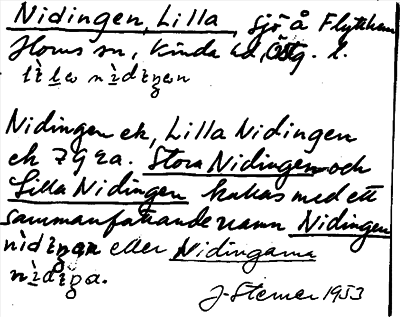 Nidingen, Lilla, sjö å Flytthem
Horns sn, Kinda hd, Östg. l.
lìla nìdiŋen
Nidingen ek, Lilla Nidingen
ek 7G 2a. Stora Nidingen och
Lilla Nidingen kallas med ett
sammanfattande namn Nidingen
nìdiŋen eller Nidingarna
nìdiŋa.
J. Sterner 1953